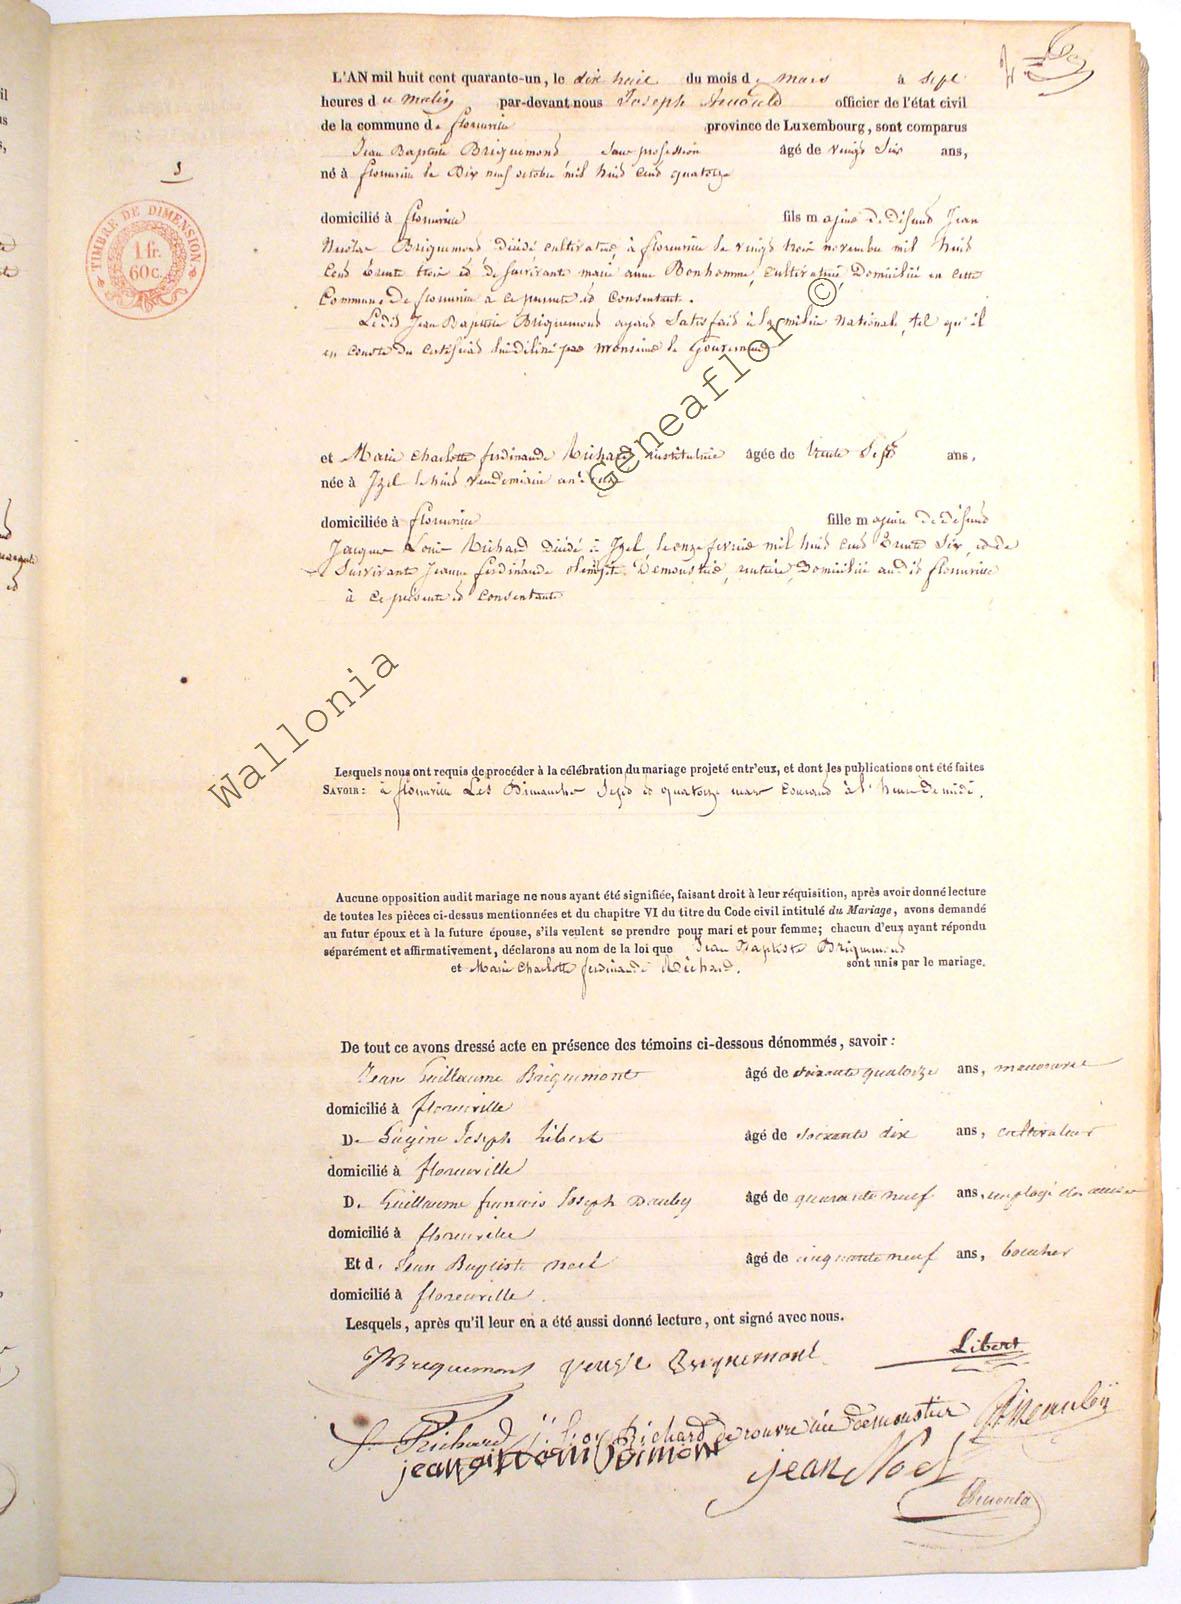 L'AN mil huit cent quarante-un, le dix huit du mois de mars à sept
heures du matin par-devant nous Joseph Arnould officier de l'état civil
de la commune de florenville province de Luxembourg, sont comparus
Jean Baptiste Briquemont sans profession âgé de vingt six ans,
né à florenville le Dix neuf octobre mil huit cent quatorze
5
TIMBRE DE DIMENSION
1 fr.
60c.
domicilié à florenville fils majeur de défunt Jean
Nicolas Briquemont décédé, cultivateur, à florenville le vingt trois novembre mil huit
cent trente trois et de survivante marie anne Bonhomme, cultivatrice, Domiciliée en cette
Commune De florenville à ce présente et Consentante.
Ledit Jean Baptiste Briquemont ayant Satisfait à la milice Nationale, tel qu'il
en conste du certificat lui délivré par Monsieur le Gouverneur
et Marie Charlotte ferdinande Richard institutrice âgée de trente sept ans,
née à Izel le huit vendemiaire an
domiciliée à florenville fille majeure de défunt
Jacques Louis Richard décédé à Izel, le onze fevrier mil huit cent trente six, et de
Survivante Jeanne ferdinande olimpite Demoustier, rentière, Domiciliée audit florenville
à ce présente et consentante
Lesquels nous ont requis de procéder à la célébration du mariage projeté entr'eux, et dont les publications ont été faites
SAVOIR : à florenville Les Dimanches sept et quatorze mars courant à l'heure de midi.
Aucune opposition audit mariage ne nous ayant été signifiée, faisant droit à leur réquisition, après avoir donné lecture
de toutes les pièces ci-dessus mentionnées et du chapitre VI du titre du Code civil intitulé du Mariage, avons demandé
au futur époux et à la future épouse, s'ils veulent se prendre pour mari et pour femme; chacun d'eux ayant répondu
séparément et affirmativement, déclarons au nom de la loi que Jean Baptiste Briquemont
et Marie Charlotte ferdinande Richard. sont unis par le mariage.
De tout ce avons dressé acte en présence des témoins ci-dessous dénommés, savoir :
Jean Guillaume Briquemont âgé de soixante quatorze ans, manouvrier
domicilié à florenville
De Eugène Joseph Libert âgé de soixante dix ans, cultivateur
domicilié à florenville
De Guillaume françois Joseph Dauby âgé de quarante neuf ans, employé des accises
domicilié à florenville
Et de Jean Baptiste noël âgé de cinquante neuf ans, boucher
domicilié à florenville.
Lesquels, après qu'il leur en a été aussi donné lecture, ont signé avec nous.
JBriquemont veuve Briquemont Libert
f. Richard Richard de rouvre née demoustier
jean Noel
Arnould
Wallonia Geneaflor ©